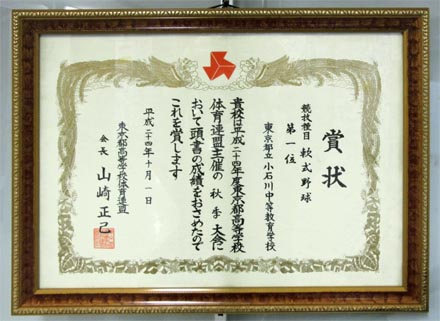 賞状
競技種目 軟式野球
第一位
東京都立小石川中等教育学校
貴校は平成二十四年度東京都高等学校
体育連盟主催の秋季大会に
おいて頭書の成績をおさめたので
これを賞します
平成二十四年十月一日
東京都高等学校体育連盟
会長 山崎正己